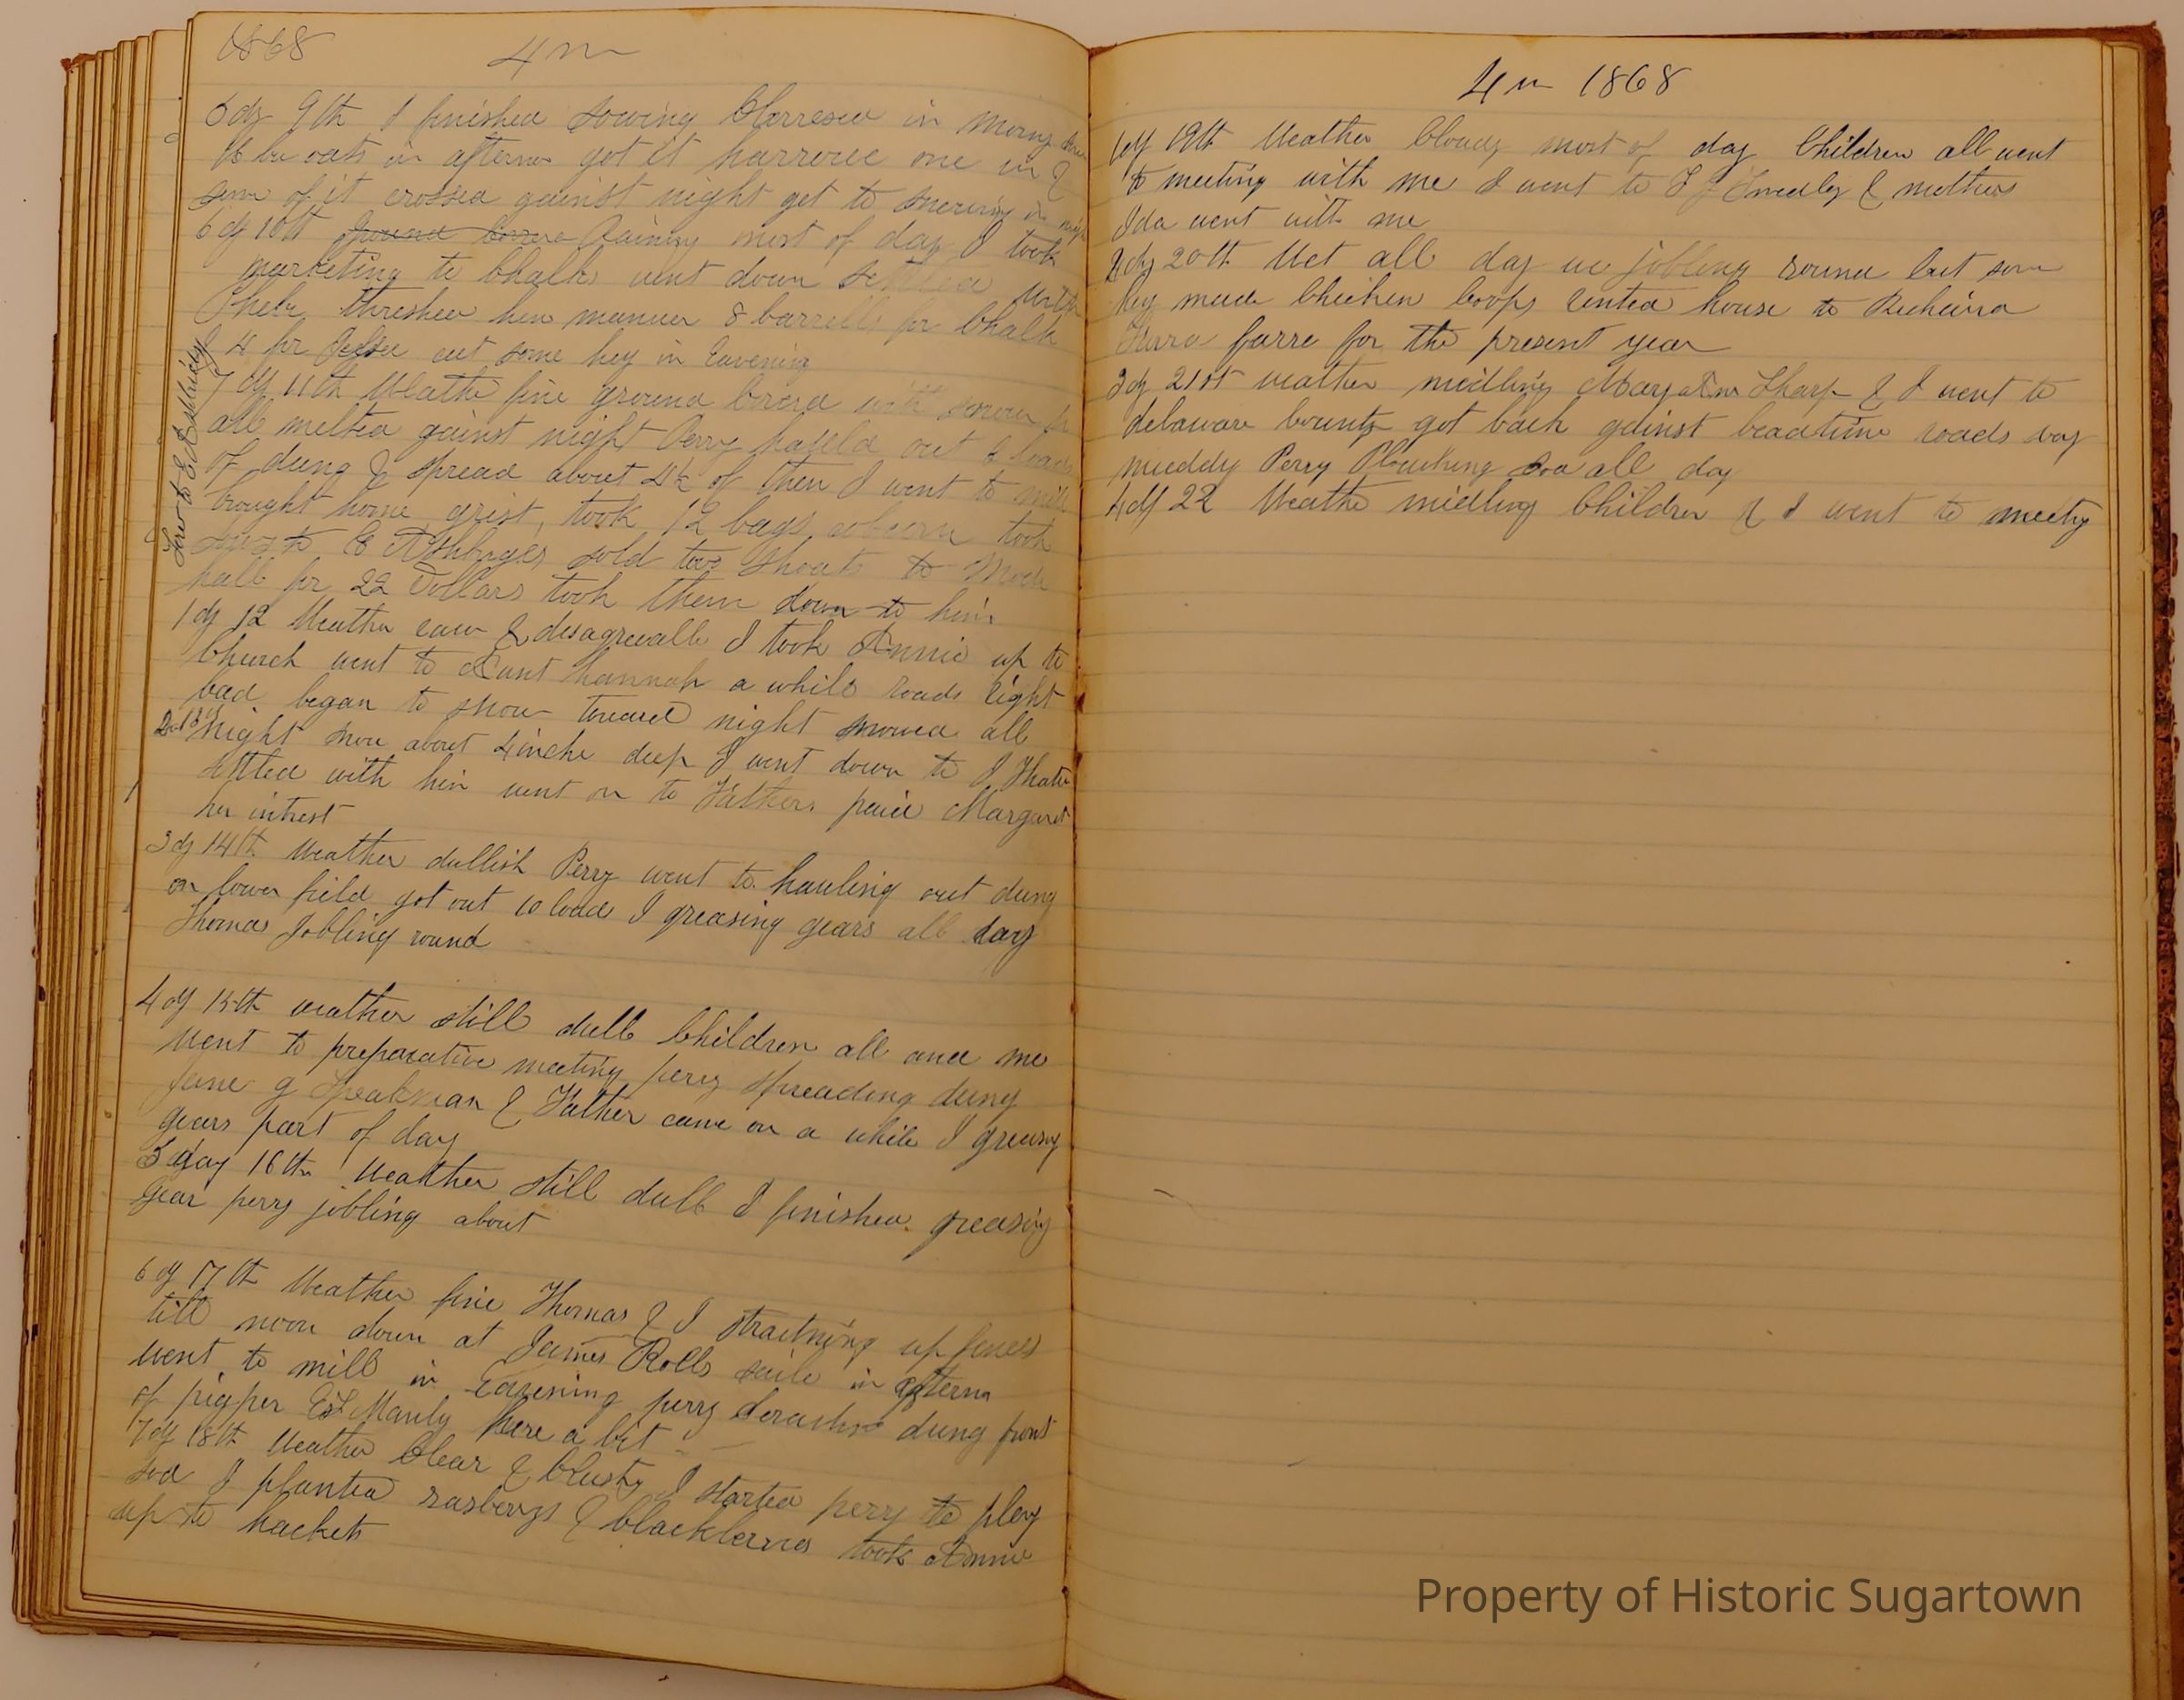 1868 4m
5 dy 9th I finished sowing in morng
16 bu oats in afternoo got it harrowe one in &
some of it crossed gainst night get to snowing in nigh
6 dy 10th Raining most of day I took
marketing to Chalks went down settled with
threshed hen manuer 8 barrells for Chalk
& 4 for cut some hay in Eavening
7 dy 11th Weathe fine ground coverd with snow
all melted gainst night Perry hauld out loads
of dung & spread about 4½ of them I went to mill
brought home grist, took 12 bags took
sow to E Ashbriges sold two Shoats to
hall for 22 Dollars took them down to him
Sow to E Ashbridg
1 dy 12 Weather raw & disagreeable I took Annie up to
Church went to Aunt hannah a while roads right
bad began to snow toward night snowed all
2d 13th night snow about 4 inche deep I went down to I Thatr
settled with him went on to Fathers paid Margaret
her intrest
3 dy 14th Weather dullish Perry went to hauling out dung
on lower field got out 10 load I greasing gears all day
Thomas Jobling round
4 dy 15th weather still dull Children all and me
went to preparative meeting perry spreading dung
Jane g Speakman & Father came on a while I greasing
gears part of day
5 day 16th Weather still dull I finished greasing
gear perry jobling about
6 dy 17th Weather fine Thomas & I straitning up fences
till noon down at James Rolls saile in aftern
went to mill in Eavening perry dung front
of pigpen Est Manly here a bit
7 dy 18th Weather Clear & blusty I started perry to plow
sod I planted rasberrys & blackberries took Annie
up to hackets
4m 1868
1 dy 19th Weather Cloudy most of day Children all went
to meeting with me I went to T J Smedly & mothers
Ida went with me
2 dy 20th Wet all day we jobling round cut some
hay made Chicken Coops rented house to Richard
farre for the present year
3 dy 21st weather midling Maryann Sharp & I went to
delaware County got back gainst beadtime roads vary
muddy Perry Ploughing Sod all day
4 dy 22 Weathe midling Children & I went to meetng
Property of Historic Sugartown